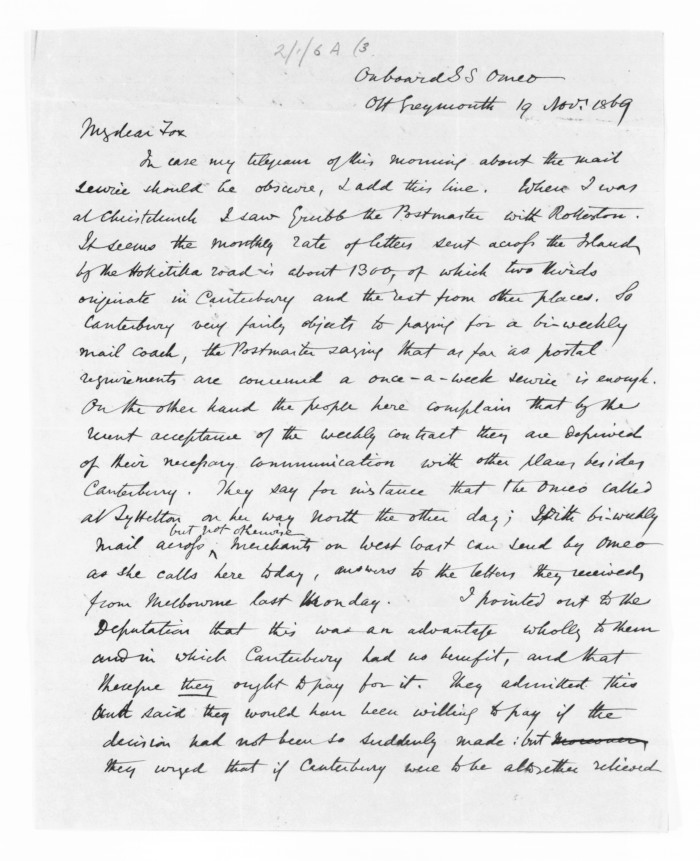 2/1/6 A (3.
Onboard S S Omeo
Off Greymouth 19 Novr. 1869
My dear Fox
In case my telegram of this morning about the mail
service should be obscure, I add this line. When I was
at Christchurch I saw Grubb the Postmaster with Rolleston.
It seems the monthly rate of letters sent across the Island
by the Hokitika road is about 1300, of which two thirds
originate in Canterbury and the rest from other places. So
Canterbury very fairly objects to paying for a bi-weekly
mail coach, the Postmaster saying that as far as postal
requirements are concerned a once-a-week service is enough.
On the other hand the people here complain that by the
recent acceptance of the weekly contract they are deprived
of their necessary communication with other places besides
Canterbury. They say for instance that the Omeo called
at Lyttelton on her way North the other day; With bi-weekly
but not otherwise
mail across Merchants on West Coast can send by Omeo
as she calls here today, answers to the letters they received
from Melbourne last Monday. I pointed out to the
Deputation that this was an advantage wholly to them
and in which Canterbury had no benefit, and that
therefore they ought to pay for it. They admitted this
and said they would have been willing to pay if the
decision had not been so suddenly made: but moreover
they urged that if Canterbury were to be altogether relieved